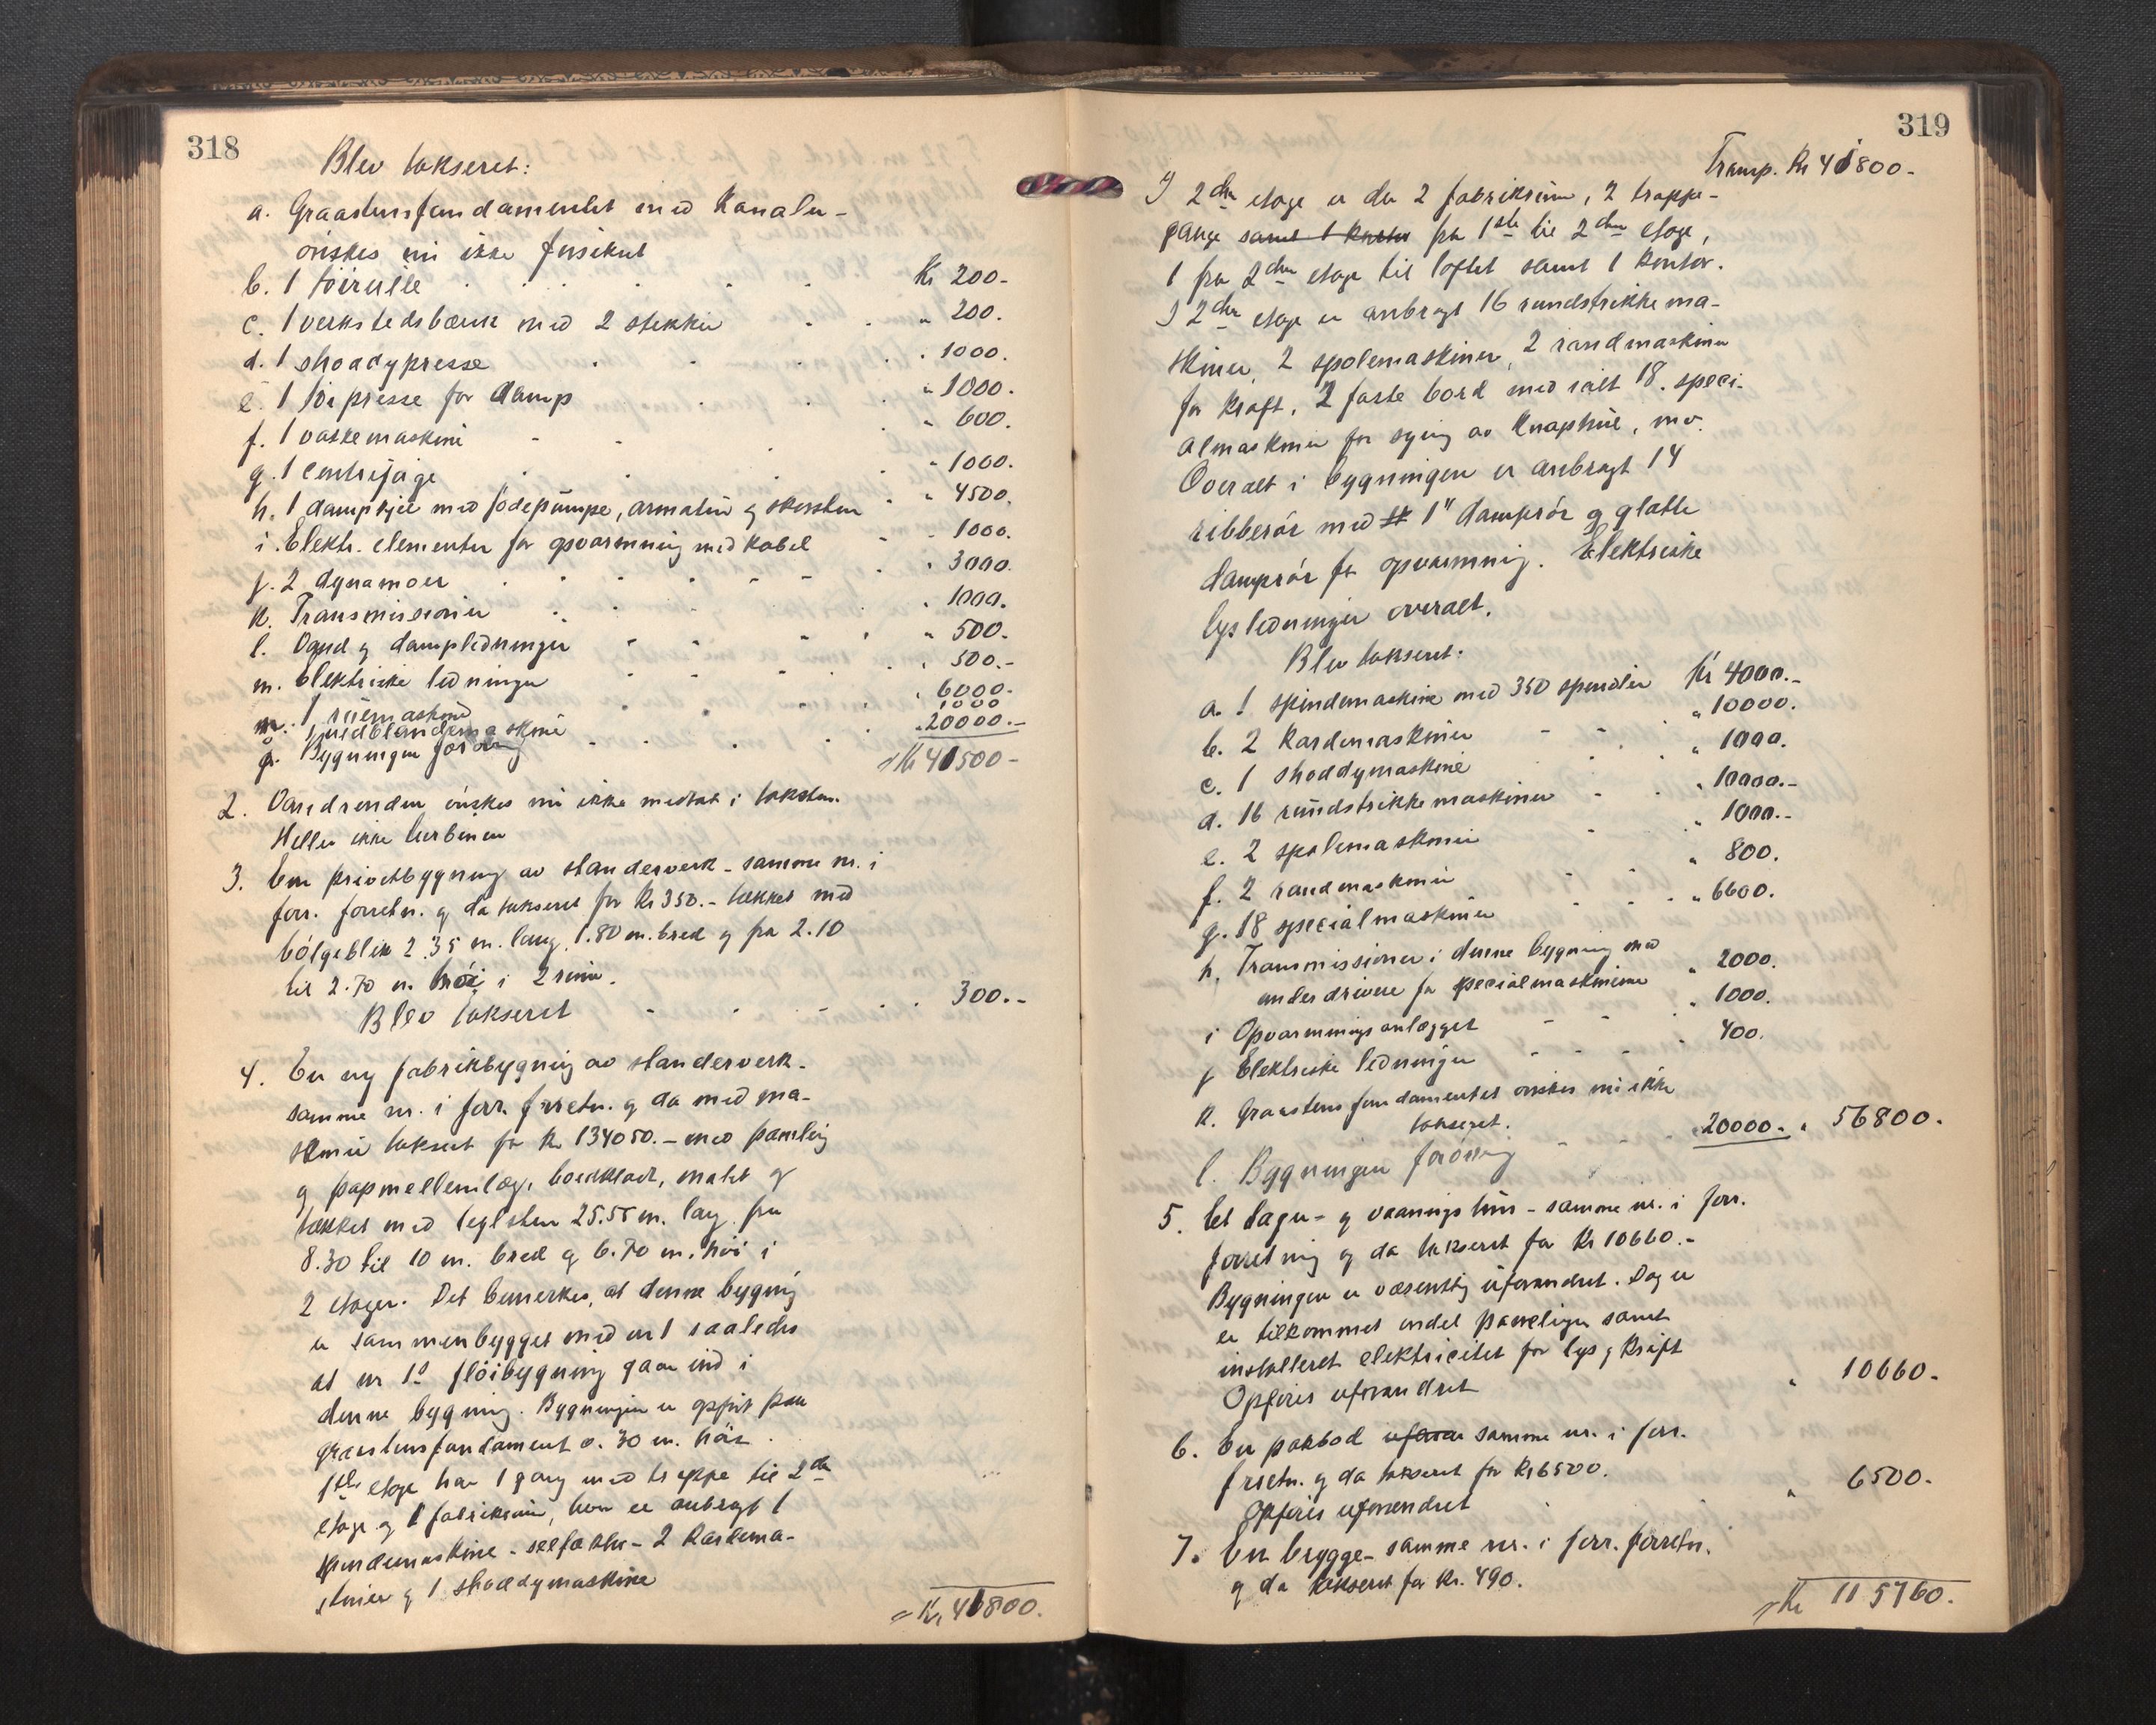 318
Blev takseret:
a. Graastensfundamentet med Kanaler -
ønskes nu ikke forsikret
b. 1 tøirulle . . . . . Kr 200.-
c. 1 verkstedsbænk med 2 stekker . . " 200.
d. 1 shoddypresse . . . . " 1000.
e. 1 tøipresse for damp . . . " 1000.
f. 1 vaskemaskine - - . . " 600.
g. 1 Centrifuge . . . . " 1000.
h. 1 dampkjel med fødepumpe, armatur og skorsten . " 4500.
i. Elektr. elementer for opvarmning med Kabel - - 1000.
j. 2 dynamoer . . . . " 3000.
k. Transmissioner . . . . " 1000.
l. Vand og dampledninger - - . " 500.
m. Elektriske ledninger - - - . " 500.-
n. 1 riiemaskine . . . . " 6000.-
o. 1 uldblandemaskine 1000
p. Bygningen forøvrig - . . . " 20000.-
Kr 41500-
2. Vandrenden ønskes nu ikke medtat i taksten.
Heller ikke turbinen
3. En privetbygning av standerverk - samme nr. i
forr. forretn. og da takseret for Kr 350.- tækket med
bølgeblik 2.35 m. lang, 1.80 m. bred og fra 2.10
til 2.70 m. høi i 2 rum.
Blev takseret - . - . . 300.-
4. En ny fabrikbygning av standerverk -
samme nr. i forr. forretn. og da med ma-
skiner takseret for Kr. 134050.- med paneling
og papmellemlæg, bordklædt, malet og
tækket med teglsten 25.55 m. lang fra
8.30 til 10 m. bred og 6.70 m. høi i
2 etager. Det bemerkes, at denne bygning
er sammenbygget med nr 1 saaledes
at nr 1s fløibygning gaar ind i
denne bygning. Bygningen er opført paa
graastensfundament 0.30 m. høit.
1ste etage har 1 gang med trappe til 2den
etage og 1 fabrikrum, hvor er anbragt 1
spindemaskine - selfaktor - 2 Kardema-
skiner og 1 shoddymaskine
= Kr. 41800.
319
Transp. Kr 41800.-
I 2den etage er der 2 fabrikrum, 2 trappe-
gange samt 1 kontor fra 1ste til 2den etage,
1 fra 2den etage til loftet samt 1 kontor.
I 2den etage er anbragt 16 rundstrikkema-
skiner, 2 spolemaskiner, 2 randmaskiner
for kraft, 2 faste bord med ialt 18. speci-
almaskiner for sying av Knaphul, mv.
Overalt i bygningen er anbragt 14
ribberør med 1" damprør og glatte
damprør for opvarmning. Elektriske
lysledninger overalt.
Blev takseret.
a. 1 spindemaskine med 350 spindler Kr 4000.-
b. 2 Kardemaskiner - - " 10000.
c. 1 shoddymaskine . . " 1000.
d. 16 rundstrikkemaskiner - . " 10000.-
e. 2 spolemaskiner . " 1000.-
f. 2 randmaskiner - - " 800.
g. 18 specialmaskiner . . . " 6600.
h. Transmissioner i denne bygning med
underdrivere for specialmaskinene " 2000.
i Opvarmningsanlægget - - . " 1000.
j Elektriske ledninger - - - . 400.
k. Graastensfundamentet ønskes nu ikke
takseret.
l. Bygningen forøvrig - - " 20000.- " 56800.
5. Et lager- og vaaningshus - samme nr. i forr.
forretning og da takseret for Kr 10660.-
Bygningen er væsentlig uforandret. Dog er
er tilkommet endel panelinger samt
installeret elektricitet for lys og kraft
Opføres uforandret " 10660.-
6. En pakbod ufora samme nr. i forr.
forretn. og da takseret for Kr 6500.
Opføres uforandret . " 6500.-
7. En brygge - samme nr. i forr. forretn.
og da takseret for Kr. 490.
Kr 115760.